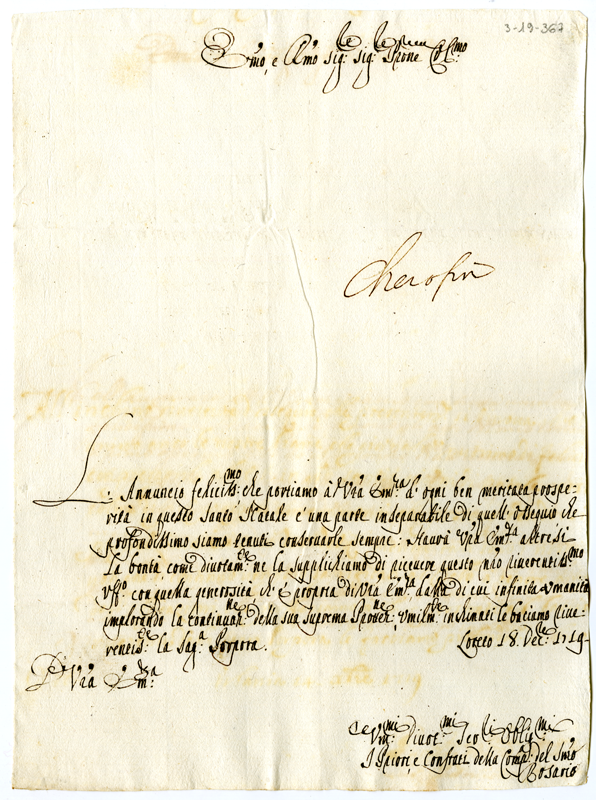 3-19-367
Em̃o, e Rm̃o Sig:re Sig:re Prone Col:mo
L'Annuncio felicis:mo che portiamo à Vr̃a Em:za d'ogni ben meritata prospe-
rità in questo Santo Natale è una parte inseparabile di quell'ossequio che
profondissimo siamo tenuti conservarle sempre: Haurà Vr̃a Em:za altresi
la bontà come divotam:te ne la supplichiamo di ricevere questo nr̃o riverentis:mo
uff:o con quella generosità ch'è propria di Vr̃a Em:za dalla di cui infinita umanità
implorando la continuaz:ne della sua suprema Protez:ne, umilm:te inchinati le baciamo rive-
rentis:te la Sag:a Porpora. Loreto 18. Dec:re 1719.
Di Vr̃a Em:za
Um:mi Divot:mi Ser:ri Oblig:mi
I Priori, e Confrati della Comp:a del Sm̃o
Rosario